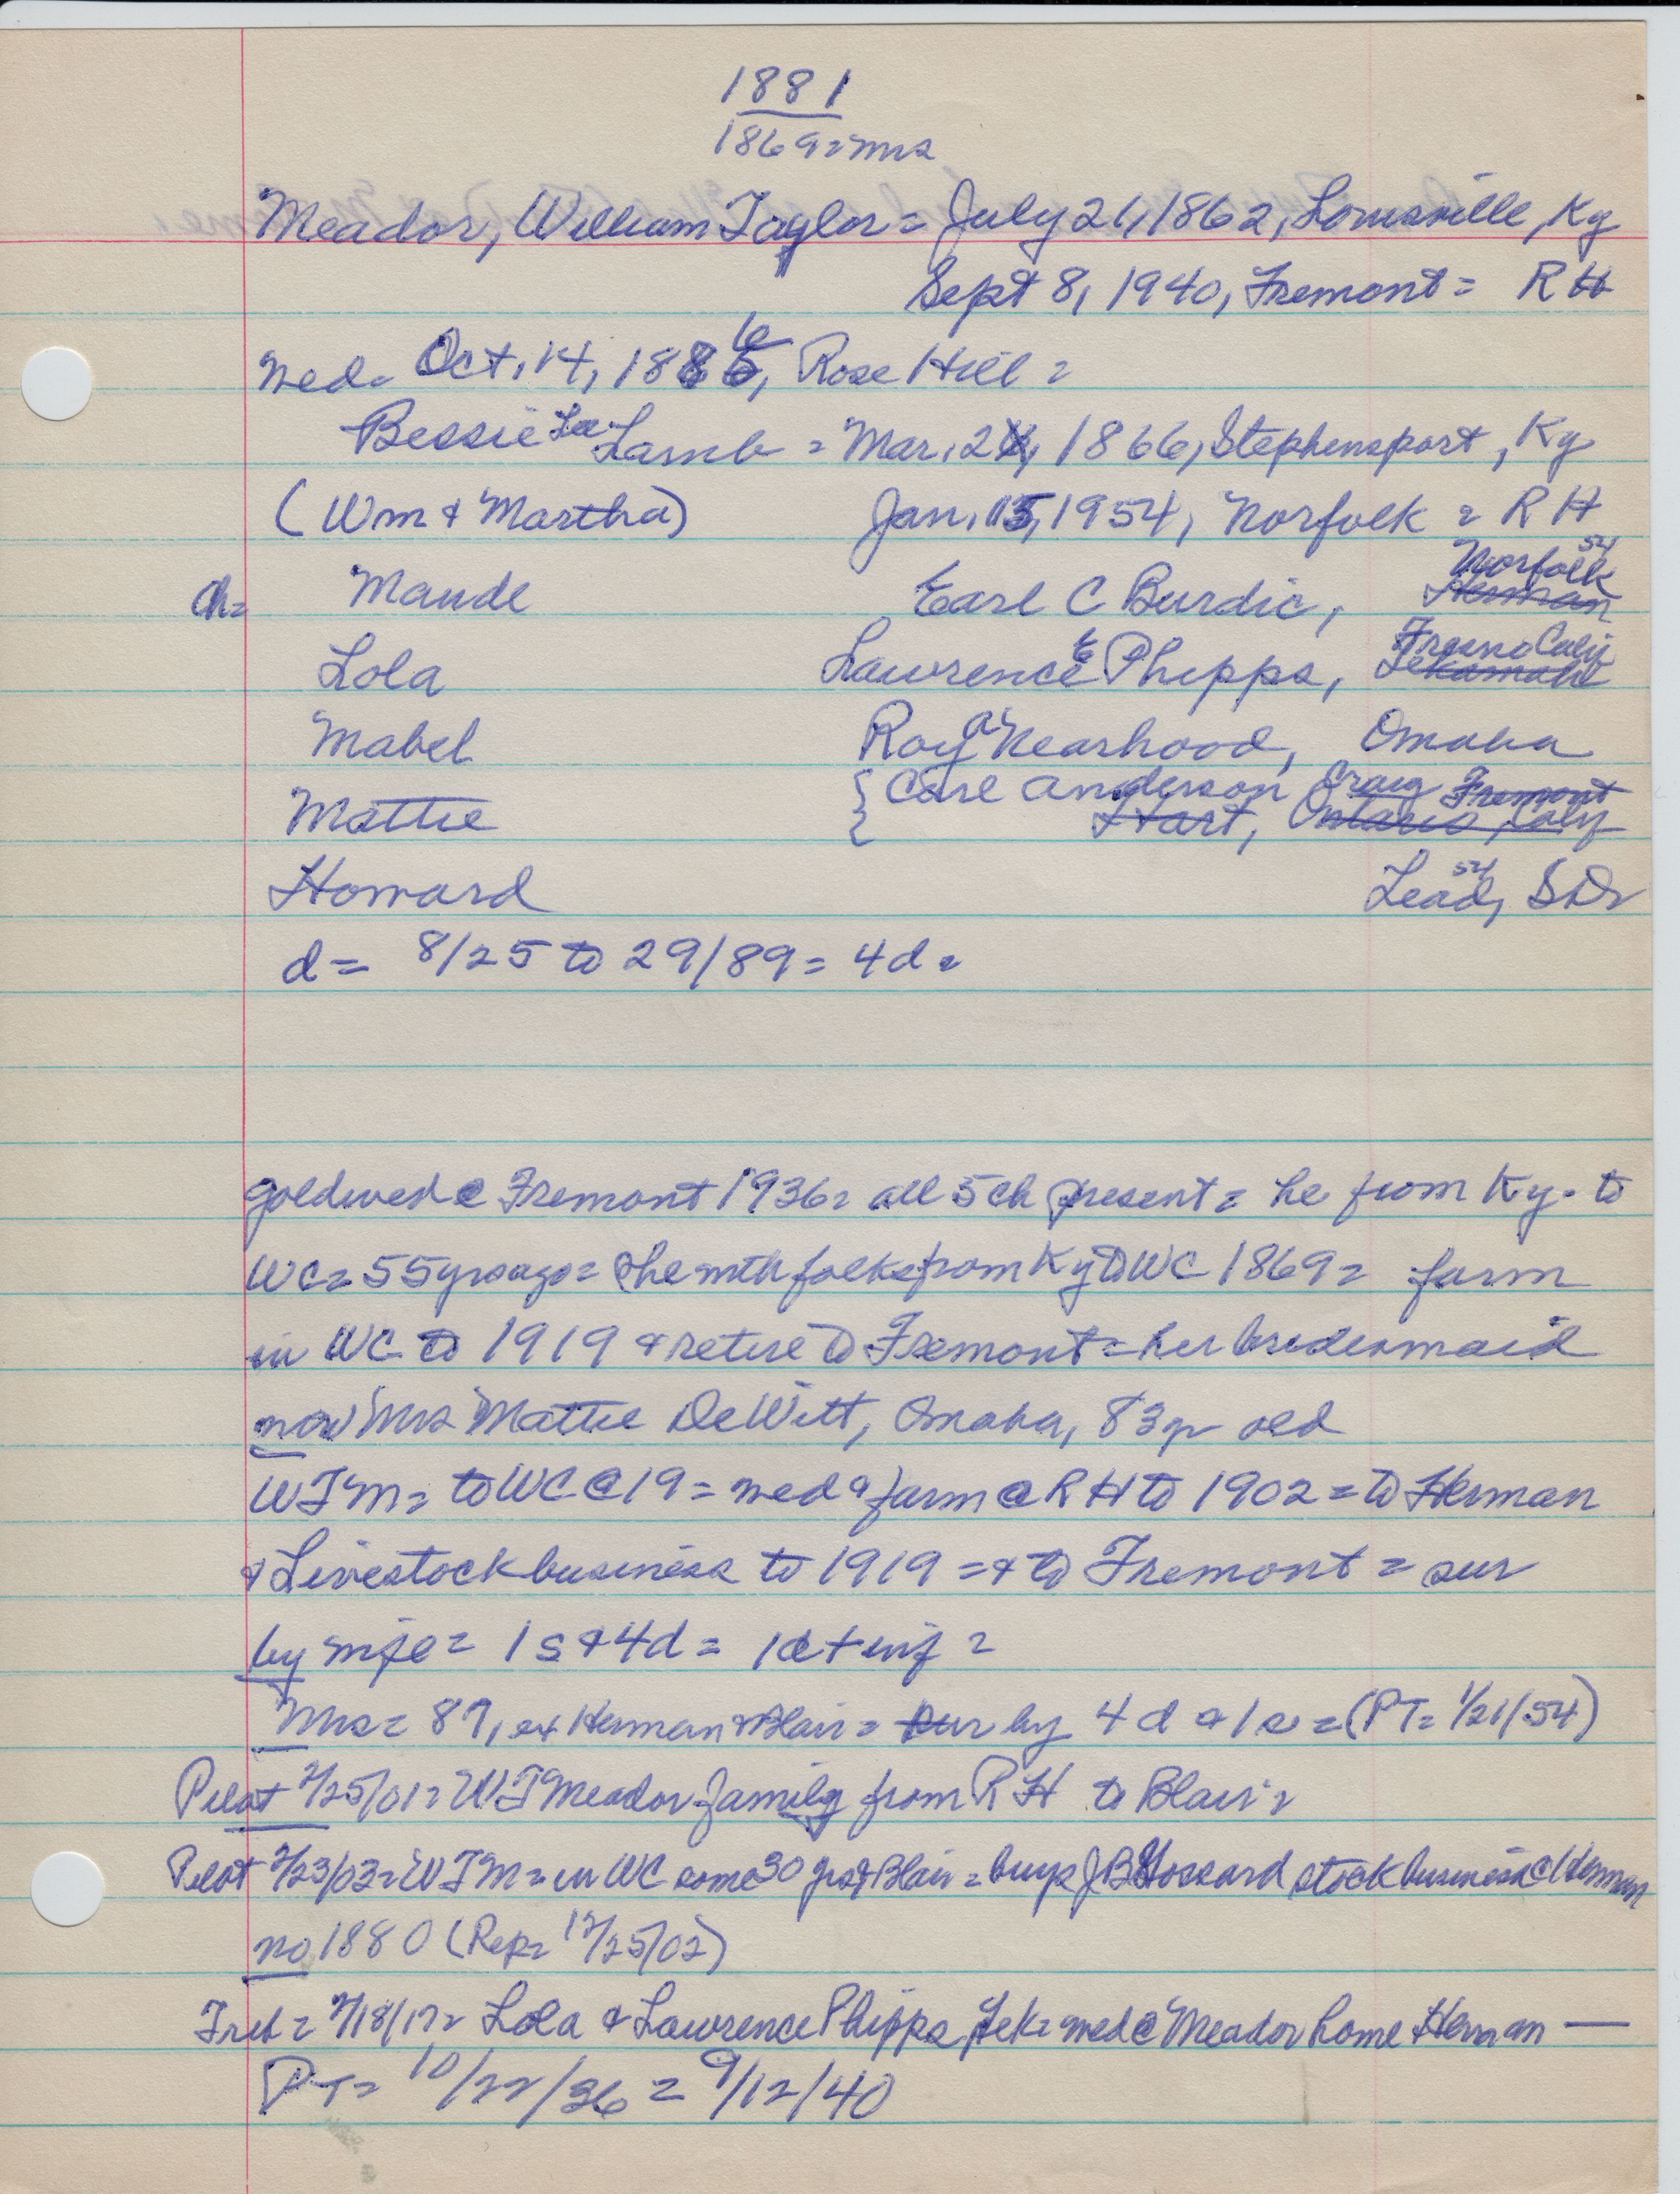 1881
1869=mrs
Meador, William Taylor = July 21, 1862, Louisville, Ky
Sept 8, 1940, Fremont = R H
wed= Oct. 14, 1886, Rose Hill =
Bessie Lee Lamb = Mar. 2, 1866, Stephensport, Ky
(Wm & Martha) Jan. 15, 1954, Norfolk = R H
ch= Maude Earl C Burdic, Norfolk 54 Herman
Lola Lawrence E Phipps, Fresno Calif Tekamah
Mabel Roy A Nearhood, Omaha
Mattie { Carl Anderson Craig Fremont
Hart, Ontario, Calif
Howard Lead, 54 S D
d = 8/25 to 29/89 = 4d =
goldwed @ Fremont 1936 = all 5 ch present = he from Ky. to
WC = 55 yrs ago = she with folks from Ky to WC 1869 = farm
in WC to 1919 & retire to Fremont = her bridesmaid
now Mrs Mattie DeWitt, Omaha, 83 yr old
WTM = to WC @ 19 = wed & farm @ R H to 1902 = to Herman
& Livestock business to 1919 = & to Fremont = sur
by wife = 1 s & 4 d =
Mrs = 87, ex Herman & Blair = sur by 4 d & 1 s = (PT= 1/21/54)
Pilot 2/25/01 = WT Meador family from R H to Blair =
Pilot 2/23/03 = WTM = in WC some 30 yrs & Blair = buys J B stock business @ Herman
no 1880 (Rep= 12/25/02)
Trib = 2/18/17 = Lola & Lawrence Phipps, Tek = wed @ Meador home Herman —
PT= 10/22/36 = 9/12/40